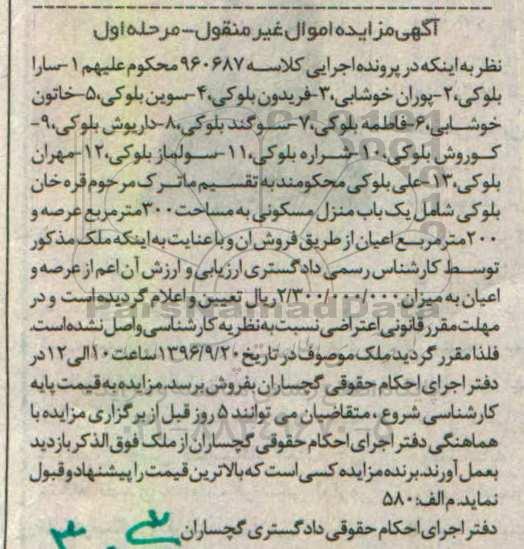 آگهی مزایده اموال غیر منقول - مرحله اول
نظر به اینکه در پرونده اجرایی کلاسه ۹۶۰۶۸۷ محکوم علیهم ۱-سارا
بلوکی،۲-پوران خوشابی،۳-فریدون بلوکی،۴-سوین بلوکی،۵-خاتون
خوشابی،۶-فاطمه بلوکی،۷-سوگند بلوکی،۸-داریوش بلوکی،۹-
کوروش بلوکی،۱۰-شراره بلوکی،۱۱-سولماز بلوکی،۱۲-مهران
بلوکی،۱۳-علی بلوکی محکومند به تقسیم ماترک مرحوم قره خان
بلوکی شامل یک باب منزل مسکونی به مساحت ۳۰۰مترمربع عرصه و
۲۰۰مترمربع اعیان از طریق فروش ان و با عنایت به اینکه ملک مذکور
توسط کارشناس رسمی دادگستری ارزیابی و ارزش آن اعم از عرصه و
اعیان به میزان ۲/۳۰۰/۰۰۰/۰۰۰ریال تعیین و اعلام گردیده است و در
مهلت مقرر قانونی اعتراضی نسبت به نظریه کارشناسی واصل نشده است.
فلذا مقرر گردید ملک موصوف در تاریخ ۱۳۹۶/۹/۲۰ساعت ۱۰الی ۱۲ در
دفتر اجرای احکام حقوقی گچساران بفروش برسد. مزایده به قیمت پایه
کارشناسی شروع ، متقاضیان می توانند ۵ روز قبل از برگزاری مزایده با
هماهنگی دفتر اجرای احکام حقوقی گچساران از ملک فوق الذکر بازدید
بعمل آورند. برنده مزایده کسی است که بالاترین قیمت را پیشنهاد و قبول
نماید. م الف: ۵۸۰
دفتر اجرای احکام حقوقی دادگستری گچساران
ParsNamadData